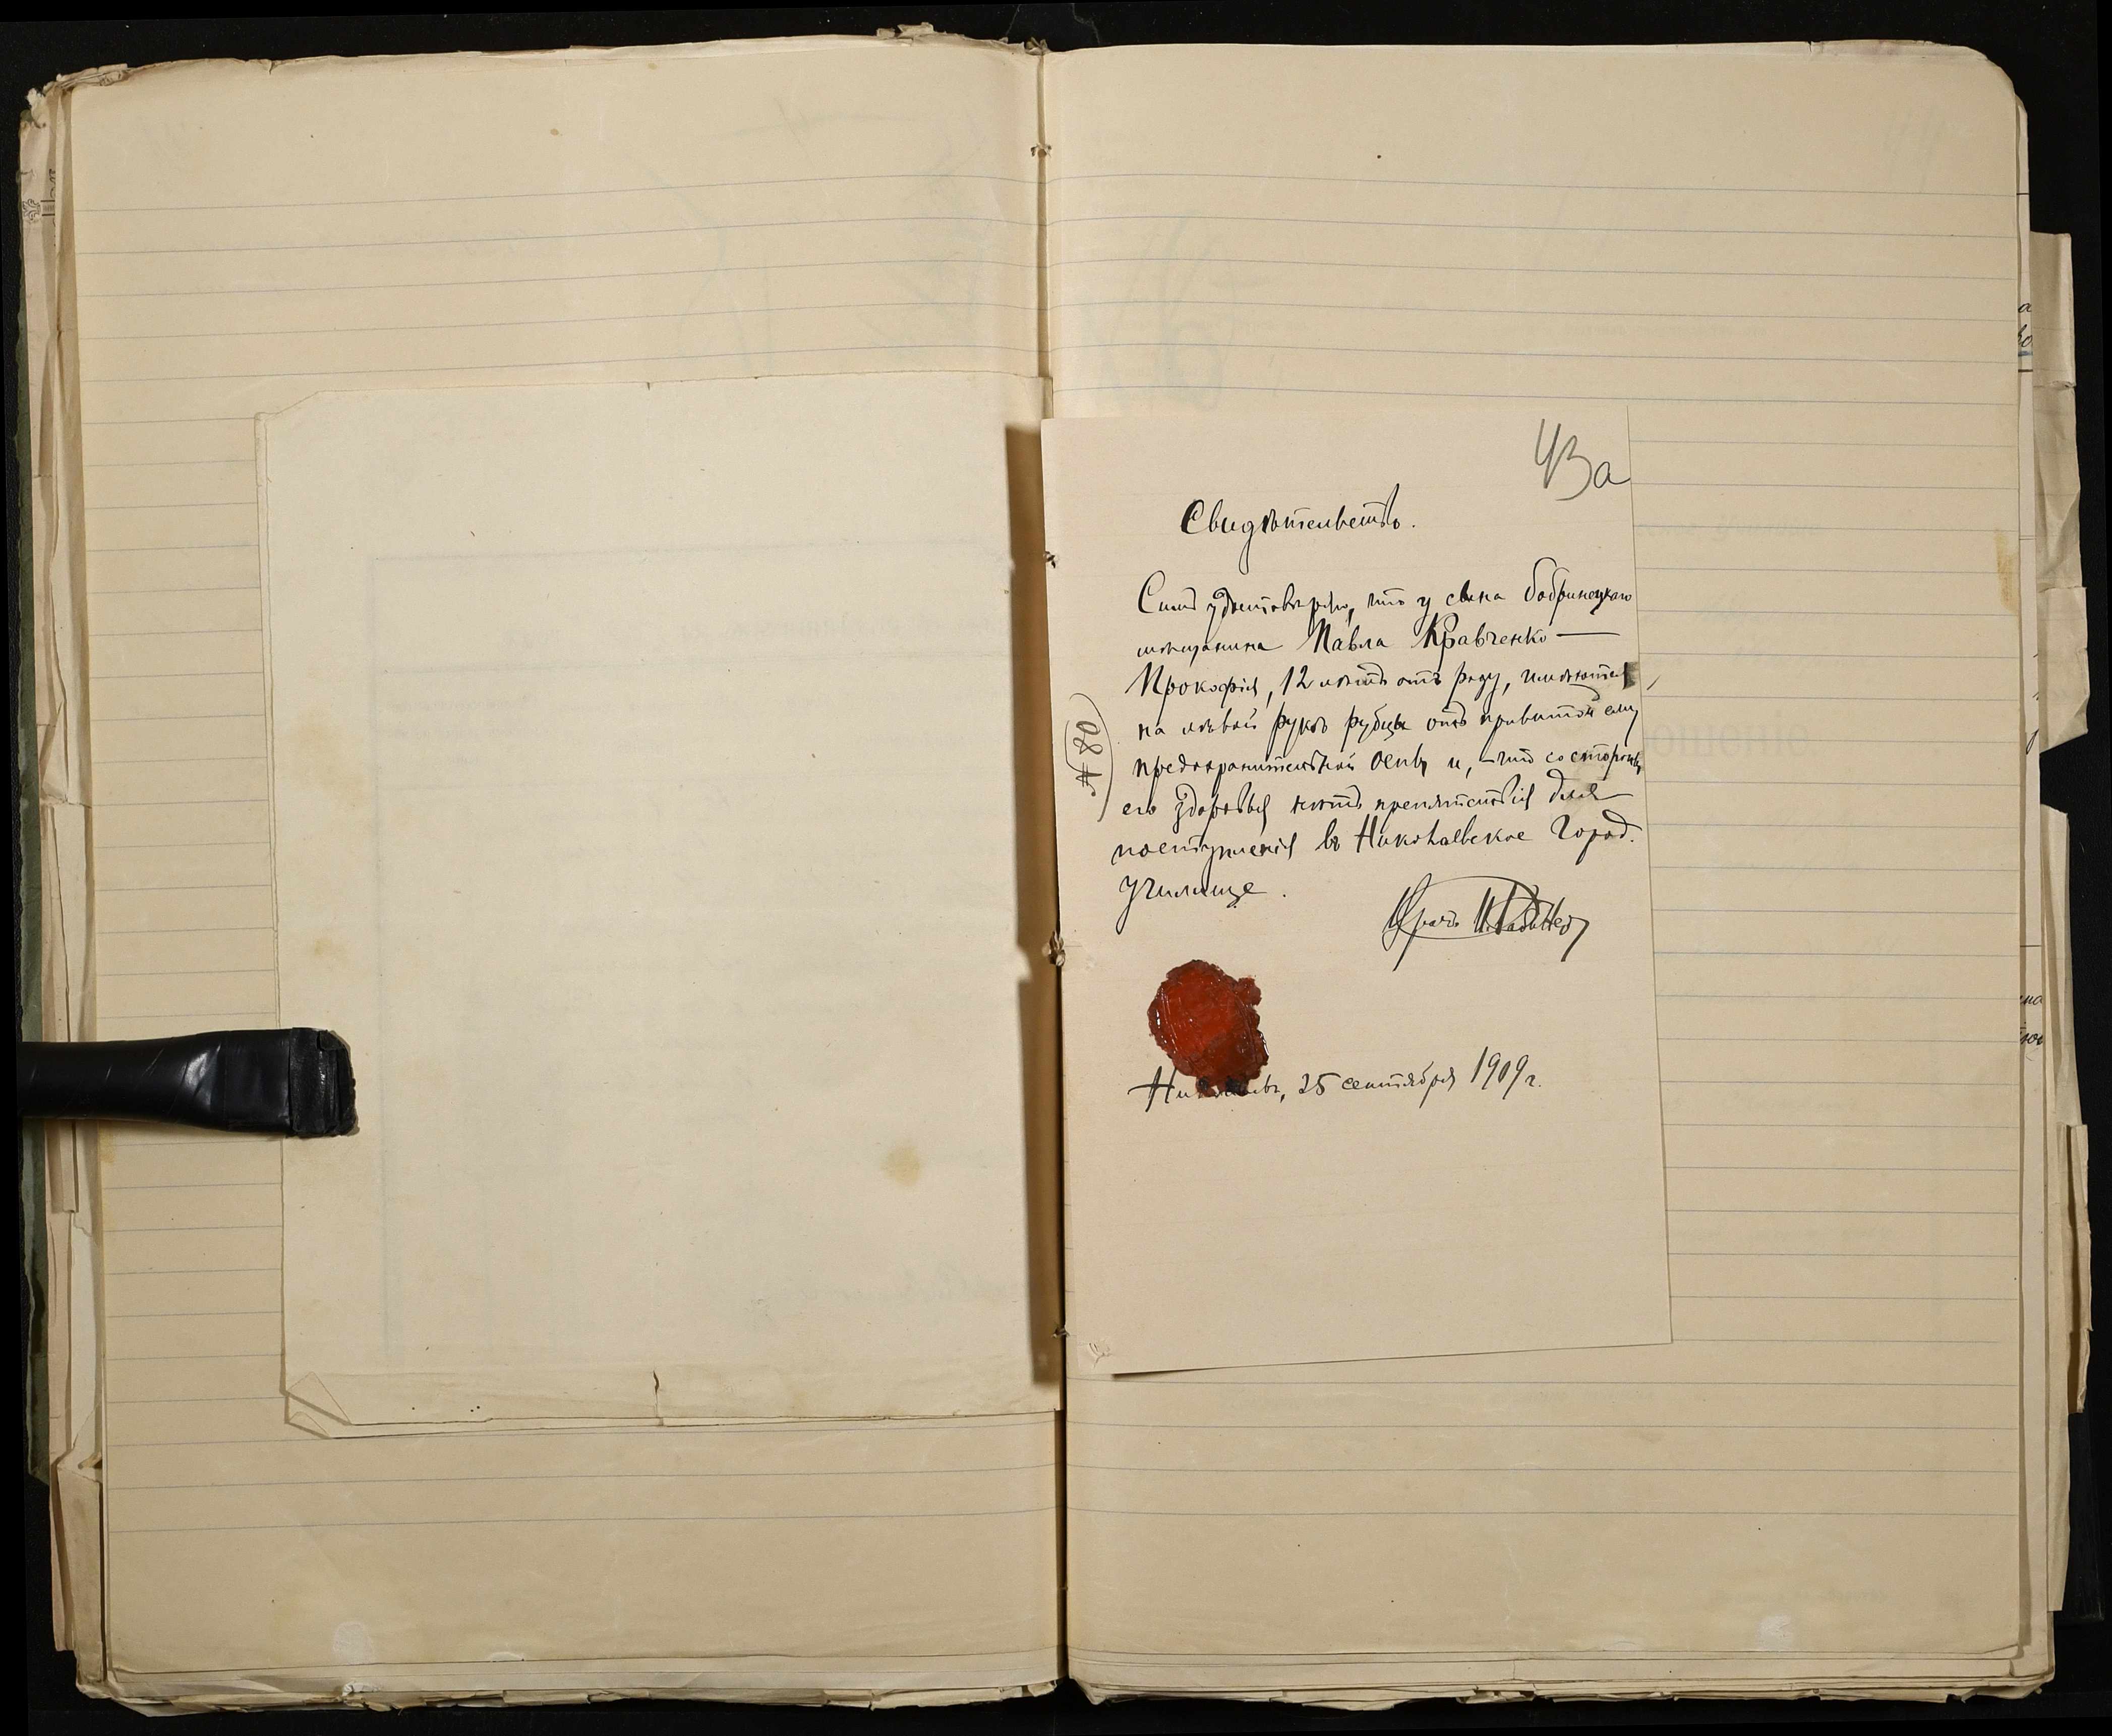 43а
Свидѣтельство.
Симъ удостовѣряю, что у сына бобринецкаго
мѣщанина Павла Кравченко —
Прокофія, 12 лѣтъ отъ роду, имѣются
на лѣвой рукѣ рубцы отъ привитой ему
предохранительной оспы и, — что со стороны
его здоровья нѣтъ препятствія для
поступленія въ Николаевское Город.
училище.
Врачъ
Николаевъ, 25 сентября 1909 г.
№ 80